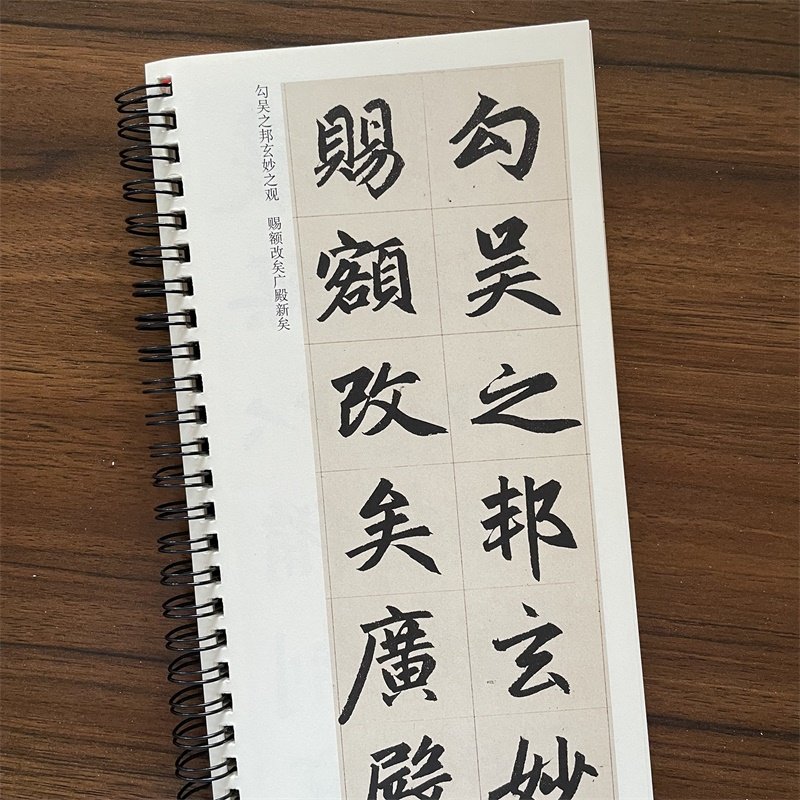 勾吴之邦玄妙
賜額改矣廣殿
勾吴之邦玄妙之观 赐额改矣广殿新矣